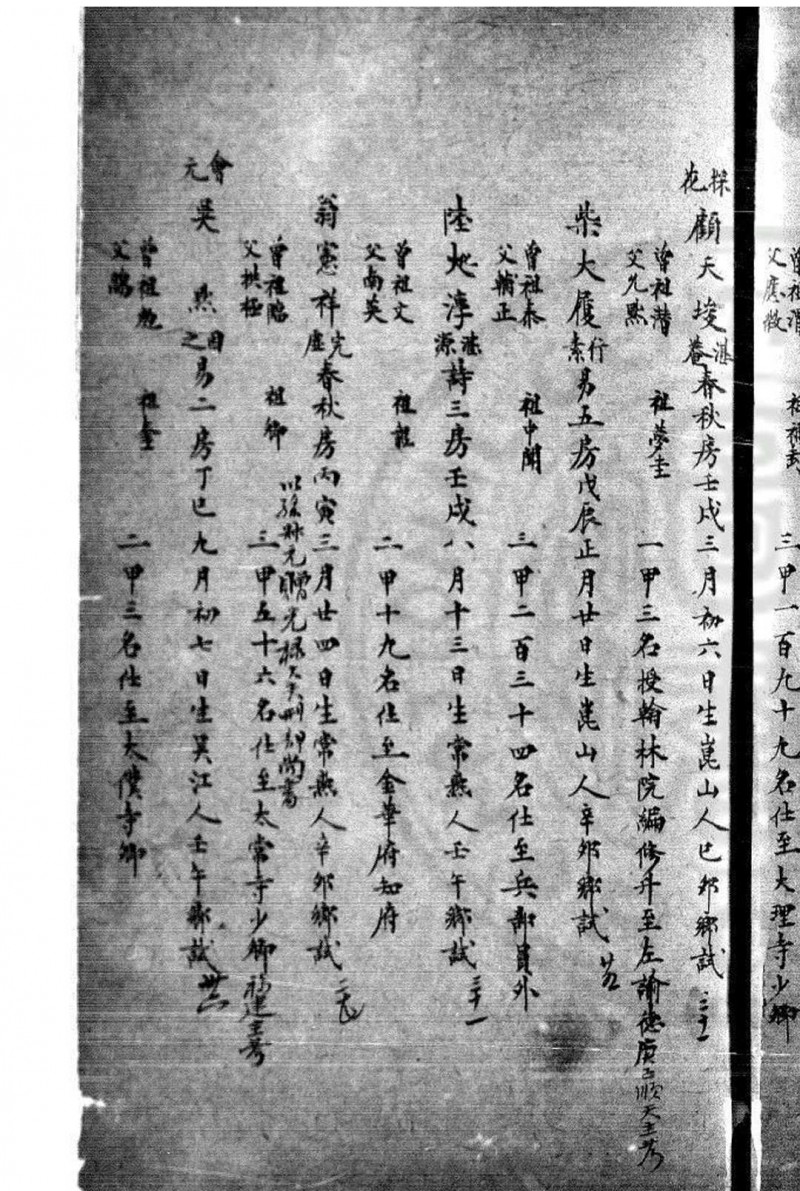 曾祖潛
父應徵
三甲一百九十九名仕至大理寺少卿
探花
顧天埈湛菴春秋房壬戌三月初六日生崑山人己卯鄉試三十一
曾祖潛 祖夢圭
父允默
一甲三名授翰林院編修升至左諭德庚子順天主考
柴大履行素易五房戊辰正月廿日生崑山人辛卯鄉試廿五
曾祖泰 祖中聞
父輔正
三甲二百三十四名仕至兵部員外
陸化淳湛源詩三房壬戌八月十三日生常熟人壬午鄉試三十一
曾祖文
父南英
二甲十九名仕至金華府知府
翁憲祥完虛春秋房丙寅三月廿四日生常熟人辛卯鄉試二七
以孫叔元贈光祿大夫刑部尚書
曾祖臨 祖卿
父拱極
三甲五十六名仕至太常寺少卿福建主考
會元
吳默因之易二房丁巳九月初七日生吳江人壬午鄉試卅六
曾祖 祖
父
二甲三名仕至太僕寺卿